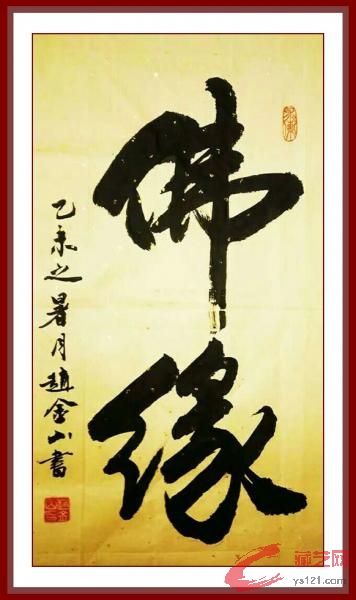 佛缘
乙未之暑月赵金山書
藏艺网
ys121.com